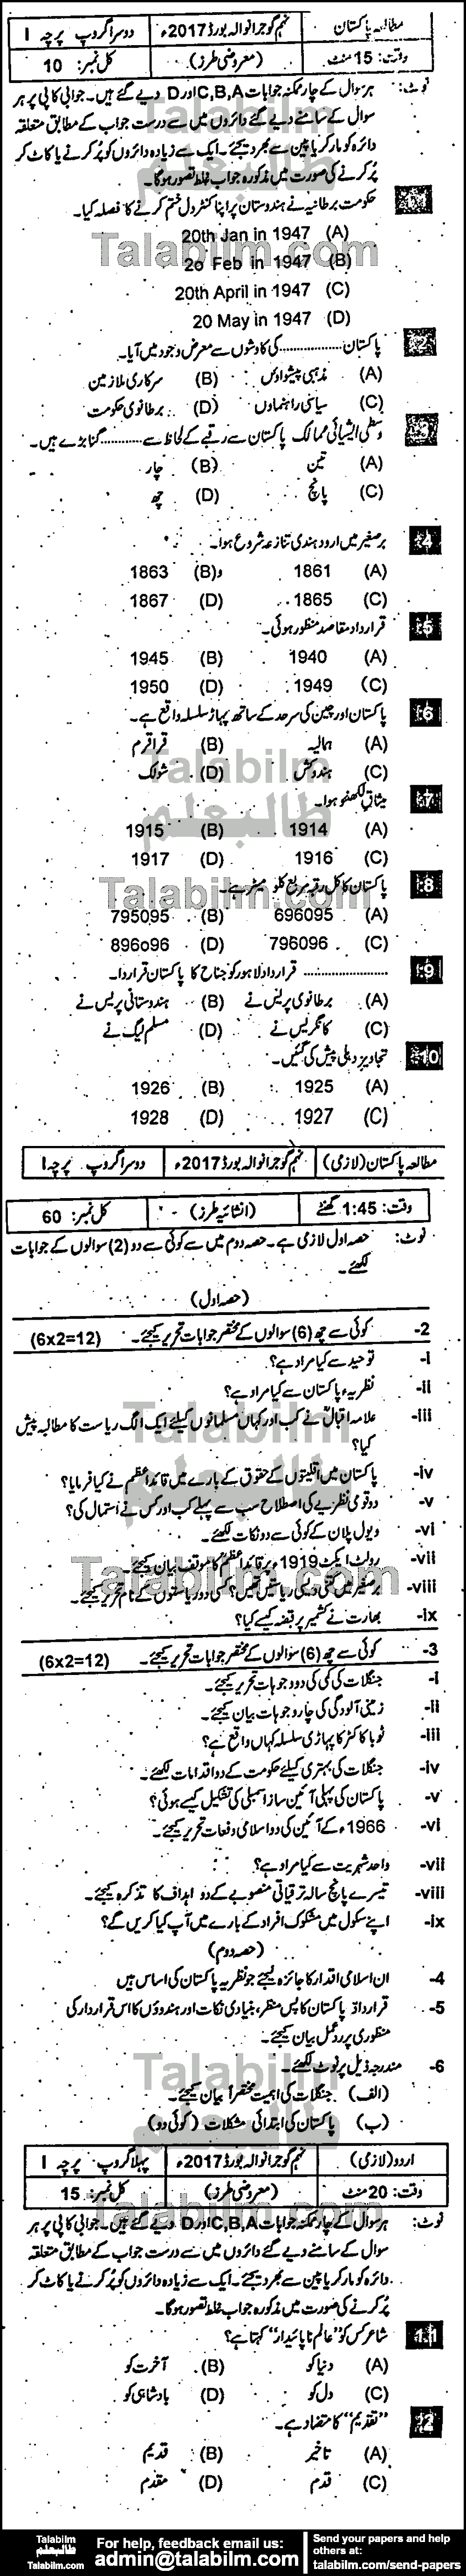 مطالعہ پاکستان نہم گوجرانوالہ بورڈ 2017ء دوسرا گروپ پرچہ I
وقت: 15 منٹ (معروضی طرز) کل نمبر: 10
نوٹ: ہر سوال کے چار ممکنہ جوابات C,B,A اور D دیے گئے ہیں۔ جوابی کاپی پر ہر
سوال کے سامنے دیے گئے دائروں میں سے درست جواب کے مطابق متعلقہ
دائرہ کو مارکر یا پین سے بھر دیجئے۔ ایک سے زیادہ دائروں کو پُر کرنے یا کاٹ کر
پُر کرنے کی صورت میں مذکورہ جواب غلط تصور ہوگا۔
1.1 حکومت برطانیہ نے ہندوستان پر اپنا کنٹرول ختم کرنے کا فیصلہ کیا۔
20th Jan in 1947 (A)
20 Feb in 1947 (B)
20th April in 1947 (C)
20 May in 1947 (D)
2 پاکستان ................ کی کاوشوں سے معرض وجود میں آیا۔
(A) مذہبی پیشواؤں (B) سرکاری ملازمین
(C) سیاسی راہنماؤں (D) برطانوی حکومت
3 وسطی ایشیائی ممالک پاکستان سے رقبے کے لحاظ سے ............ گنا بڑے ہیں۔
(A) تین (B) چار
(C) پانچ (D) چھ
4 برصغیر میں اردو ہندی تنازعہ شروع ہوا۔
(A) 1861 (B) 1863
(C) 1865 (D) 1867
5 قرارداد مقاصد منظور ہوئی۔
(A) 1940 (B) 1945
(C) 1949 (D) 1950
6 پاکستان اور چین کی سرحد کے ساتھ پہاڑ سلسلہ واقع ہے۔
(A) ہمالیہ (B) قراقرم
(C) ہندوکش (D) شوالک
7 میثاق لکھنو ہوا۔
(A) 1914 (B) 1915
(C) 1916 (D) 1917
8 پاکستان کا کل رقبہ مربع کلو میٹر ہے۔
(A) 696095 (B) 795095
(C) 796096 (D) 896096
9 ................ قرارداد لاہور کو جناح کا پاکستان قرار دیا۔
(A) برطانوی پریس نے (B) ہندوستانی پریس نے
(C) کانگریس نے (D) مسلم لیگ نے
10 تجاویز دہلی پیش کی گئیں۔
(A) 1925 (B) 1926
(C) 1927 (D) 1928
مطالعہ پاکستان (لازمی) نہم گوجرانوالہ بورڈ 2017ء دوسرا گروپ پرچہ I
وقت: 1:45 گھنٹے (انشائیہ طرز) کل نمبر: 60
نوٹ: حصہ اول لازمی ہے۔ حصہ دوم میں سے کوئی سے دو (2) سوالوں کے جوابات
لکھئے۔
(حصہ اول)
2- کوئی سے چھ (6) سوالوں کے مختصر جوابات تحریر کیجئے۔ (6x2=12)
i- توحید سے کیا مراد ہے؟
ii- نظریہ پاکستان سے کیا مراد ہے؟
iii- علامہ اقبالؒ نے کب اور کہاں مسلمانوں کیلئے ایک الگ ریاست کا مطالبہ پیش
کیا؟
iv- پاکستان میں اقلیتوں کے حقوق کے بارے میں قائداعظمؒ نے کیا فرمایا؟
v- دو قومی نظریے کی اصطلاح سب سے پہلے کب اور کس نے استعمال کی؟
vi- ویول پلان کے کوئی سے دو نکات لکھئے۔
vii- رولٹ ایکٹ 1919ء پر قائداعظمؒ کا موقف بیان کیجئے۔
viii- برصغیر میں کتنی دیسی ریاستیں تھیں؟ کسی دو ریاستوں کے نام تحریر کیجئے۔
ix- بھارت نے کشمیر پر قبضہ کیسے کیا؟
3- کوئی سے چھ (6) سوالوں کے مختصر جوابات تحریر کیجئے۔ (6x2=12)
i- جنگلات کی کمی کی دو وجوہات تحریر کیجئے۔
ii- زمینی آلودگی کی چار وجوہات بیان کیجئے۔
iii- ٹوبا کاکڑ کا پہاڑی سلسلہ کہاں واقع ہے؟
iv- جنگلات کی بہتری کیلئے حکومت کے دو اقدامات لکھئے۔
v- پاکستان کی پہلی آئین ساز اسمبلی کی تشکیل کیسے ہوئی؟
vi- 1966ء کے آئین کی دو اسلامی دفعات تحریر کیجئے۔
vii- واحد شہریت سے کیا مراد ہے؟
viii- تیسرے پانچ سالہ ترقیاتی منصوبے کے دو اہداف کا تذکرہ کیجئے۔
ix- اپنے سکول میں مشکوک افراد کے بارے میں آپ کیا کریں گے؟
(حصہ دوم)
4- ان اسلامی اقدار کا جائزہ لیجئے جو نظریہ پاکستان کی اساس ہیں
5- قرارداد پاکستان کا پس منظر، بنیادی نکات اور ہندوؤں کا اس قرارداد کی
منظوری پر ردعمل بیان کیجئے۔
6- مندرجہ ذیل پر نوٹ لکھئے۔
(الف) جنگلات کی اہمیت مختصراً بیان کیجئے۔
(ب) پاکستان کی ابتدائی مشکلات (کوئی دو)
اردو (لازمی) نہم گوجرانوالہ بورڈ 2017ء پہلا گروپ پرچہ I
وقت: 20 منٹ (معروضی طرز) کل نمبر: 15
نوٹ: ہر سوال کے چار ممکنہ جوابات C,B,A اور D دیے گئے ہیں۔ جوابی کاپی پر ہر
سوال کے سامنے دیے گئے دائروں میں سے درست جواب کے مطابق متعلقہ
دائرہ کو مارکر یا پین سے بھر دیجئے۔ ایک سے زیادہ دائروں کو پُر کرنے یا کاٹ کر
پُر کرنے کی صورت میں مذکورہ جواب غلط تصور ہوگا۔
1.1 شاعر کس کو "عالم ناپائیدار" کہتا ہے؟
(A) دنیا کو (B) آخرت کو
(C) دل کو (D) بادشاہی کو
2 "تقدیم" کا متضاد ہے۔
(A) تاخیر (B) قدیم
(C) قدم (D) مقدم
Talabilm طالبعلم Talabilm.com
For help, feedback email us: admin@talabilm.com
Send your papers and help others at: talabilm.com/send-papers